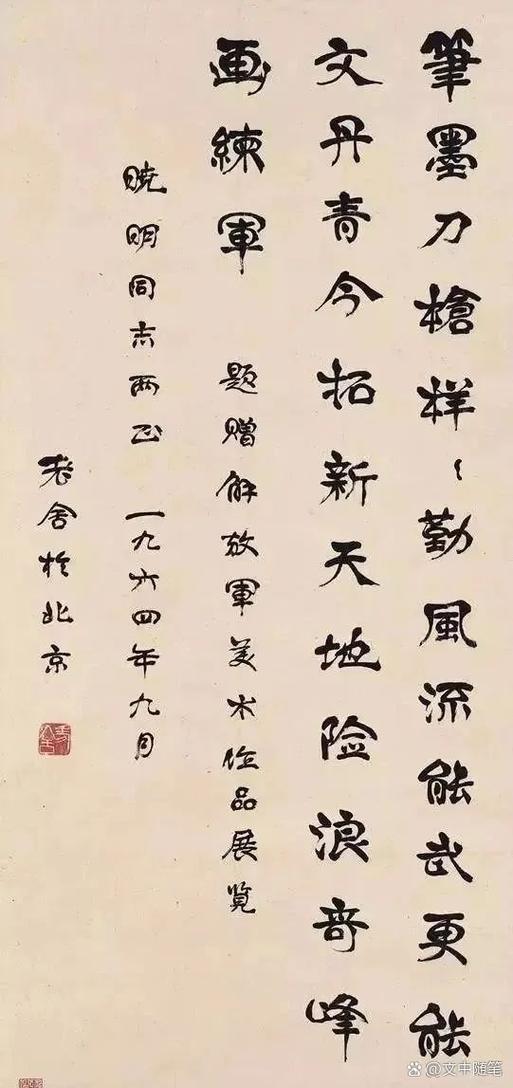 筆墨刀槍样〻勤風流能武更能
文丹青今拓新天地险浪奇峰
画練軍 题赠解放軍美术作品展览
晓明同志两正 一九六四年九月
老舍於北京
老舍
@文中随笔